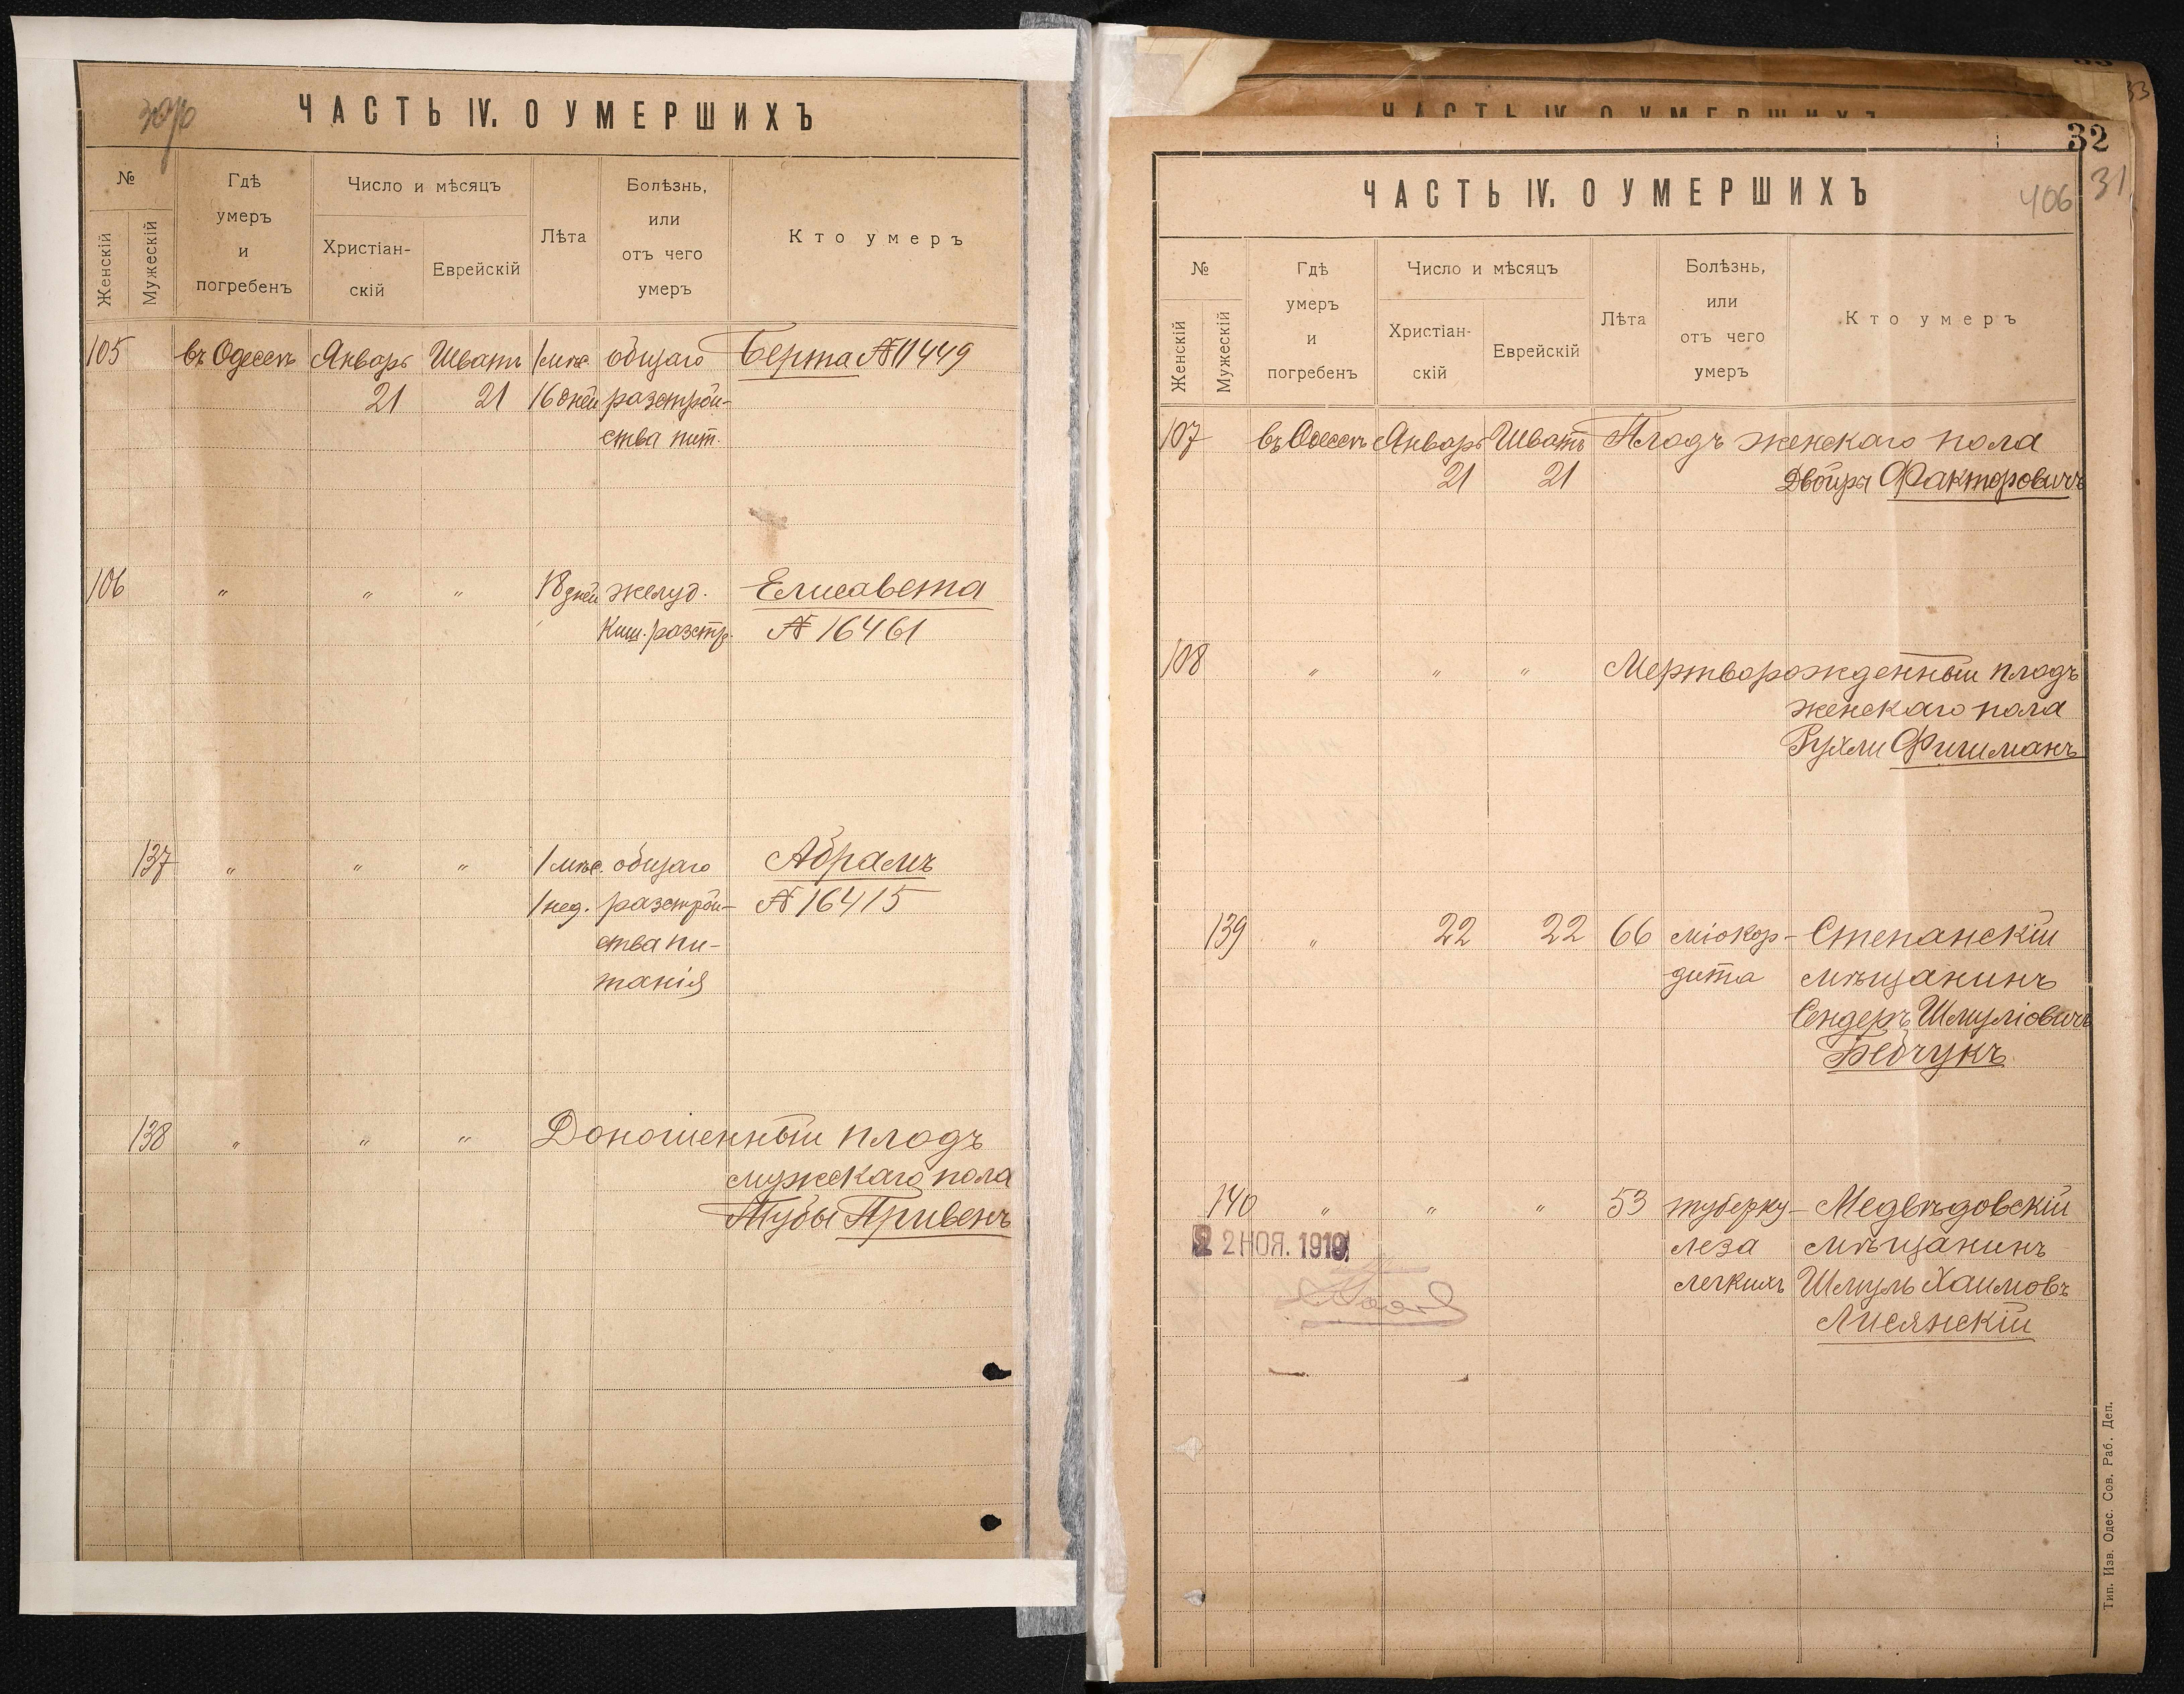 ЧАСТЬ IV. О УМЕРШИХЪ
№
Женскій
Мужескій
Гдѣ
умеръ
и
погребенъ
Число и мѣсяцъ
Христіан-
скій
Еврейскій
Лѣта
Болѣзнь,
или
отъ чего
умеръ
Кто умеръ
105 въ Одессѣ Январь Шватъ 1 мѣс. общаго Берта № 11449
21 21 16 дней разстрой-
ства пит.
106 " " " 18 дней желуд. Елисавета
киш. разстр. № 16461
137 " " " 1 мѣс. общаго Абрамъ
1 нед. разстрой- № 16415
ства пи-
танія
138 " " " Доношенный плодъ
мужскаго пола
Тубы Привенъ
33
ЧАСТЬ IV. О УМЕРШИХЪ
32
31
406
ЧАСТЬ IV. О УМЕРШИХЪ
№
Женскій
Мужескій
Гдѣ
умеръ
и
погребенъ
Число и мѣсяцъ
Христіан-
скій
Еврейскій
Лѣта
Болѣзнь,
или
отъ чего
умеръ
Кто умеръ
107 въ Одессѣ Январь Шватъ Плодъ женскаго пола
21 21 Двойры Факторовичъ
108 " " " Мертворожденный плодъ
женскаго пола
Рухли Фишманъ
139 " 22 22 66 міокар- Степанскій
дита мѣщанинъ
Сендеръ Шмуліовичъ
140 " " " 53 туберку- Медвѣдовскій
2 2 НОЯ. 1919 леза мѣщанинъ
легкихъ Шмуль Хаимовъ
Лисянскій
Тип. Изв. Одес. Сов. Раб. Деп.